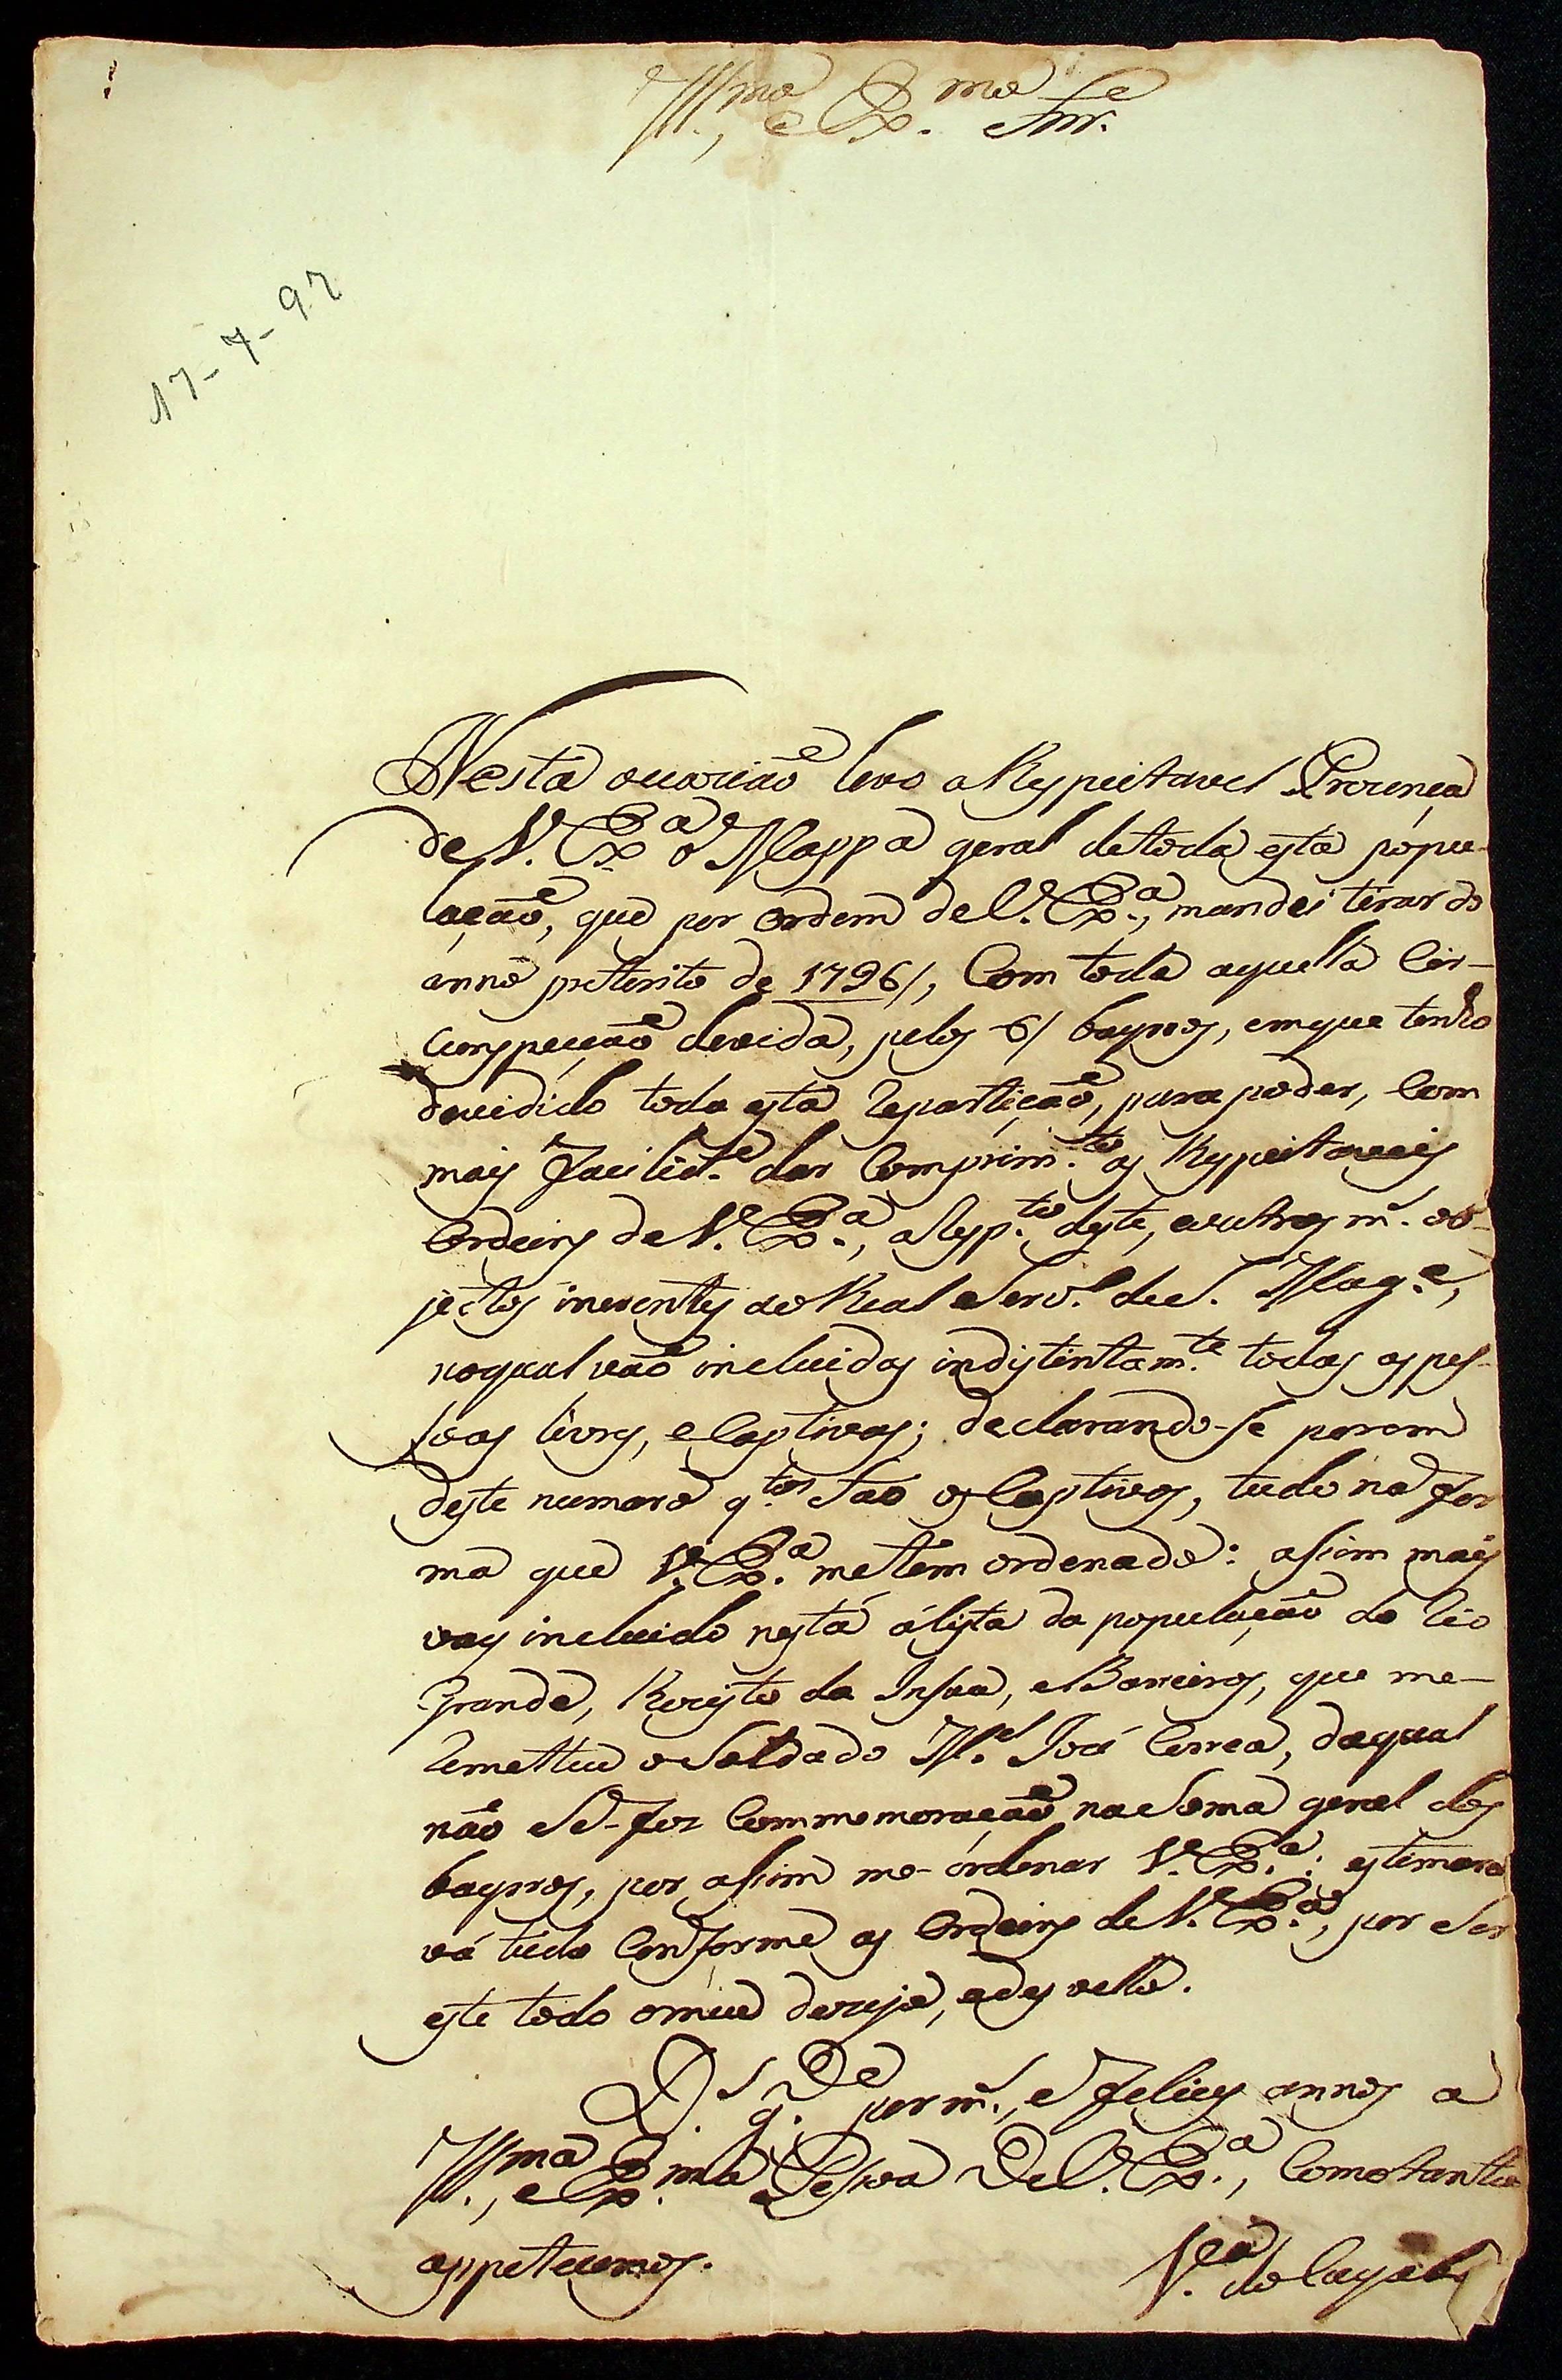 Ill.mo, e Ex.mo Snr.
17-7-97
Nesta occazião levo a Respeitavel Prezença
de V. Ex.a o Mappa geral de toda esta popu-
lação, que por ordem de V. Ex.a, mandei tirar do
anno preterito de 1796/, Com toda aquella Cir-
cunspeçção devida, pelos 6/ bayrros, em que tenho
devidido toda esta repartição, para poder, Com
mais Facilid.e dar Comprim.to as Respeitaveis
Ordeins de V. Ex.a, a resp.to deste, e outros m.s ob-
jectos inerentes ao Real Serv.o de S. Mag.e,
no qual vão incluidas indistintam.te todas as pes-
soas livres, e Captivas; declarando-se porem
deste numero q.tos São os Captivos, tudo na For
ma que V. Ex.a me tem ordenado: asim mais
vay incluido nesta a lista da população do rio
grande, Rezisto da Insua, e Barreiros, que me-
remetteu o Soldado M.el José Correa, da qual
não Se-fez Commemoração na Soma geral dos
bayrros, por asim me-ordenar V. Ex.a: estimarei
vá tudo Conforme as Ordeins de V. Ex.a, por Ser
este todo o meu dezejo, e desvello.
D.s g.de por m.s, e Felices annos a
Ill.ma, e Ex.ma Pesoa De V. Ex.a, Como tanto
appetecemos.
V.a do Cuyabá